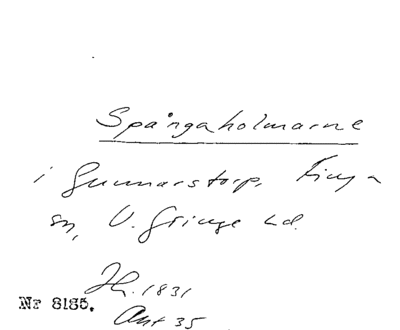 Spångaholmarne
i Gunnarstorp, Finja
sn, V. Göinge hd.
1831
Nr 8185.
Akt 35